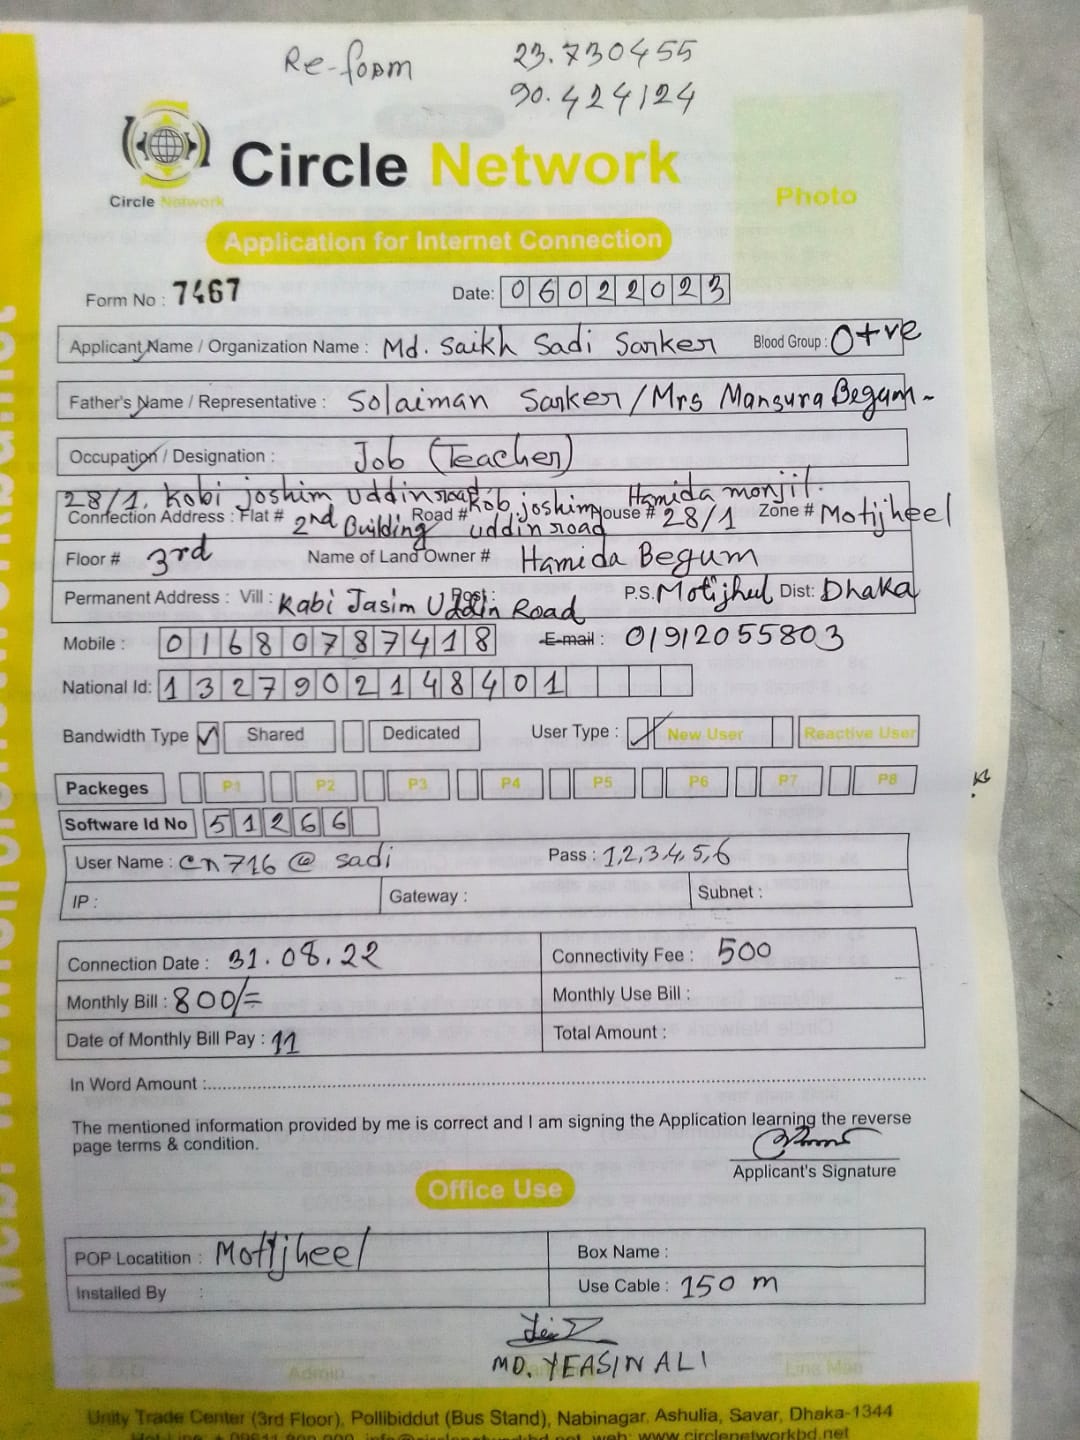 Re-form 23.730455
90.424124
Circle Network
Circle Network
Photo
Application for Internet Connection
Form No : 7467 Date: 06022023
Applicant Name / Organization Name : Md. Saikh Sadi Sarker Blood Group : O+ve
Father's Name / Representative : Solaiman Sarker / Mrs Mansura Begum
Occupation / Designation : Job (Teacher)
28/1, Kobi joshim Uddin road Kob. joshim Hamida monjil.
Connection Address : Flat # 2nd Building Road # uddin road House # 28/1 Zone # Motijheel
Floor # 3rd Name of Land Owner # Hamida Begum
Permanent Address : Vill : Kabi Jasim Uddin Road Post : P.S. Motijheel Dist: Dhaka
Mobile : 01680787418 E-mail : 01912055803
National Id: 1327902148401
Bandwidth Type Shared Dedicated User Type : New User Reactive User
Packeges P1 P2 P3 P4 P5 P6 P7 P8
Software Id No 51266
User Name : cn716@sadi Pass : 1,2,3,4,5,6
IP : Gateway : Subnet :
Connection Date : 31.08.22 Connectivity Fee : 500
Monthly Bill : 800/= Monthly Use Bill :
Date of Monthly Bill Pay : 11 Total Amount :
In Word Amount :
The mentioned information provided by me is correct and I am signing the Application learning the reverse
page terms & condition.
Applicant's Signature
Office Use
POP Locatition : Motijheel Box Name :
Installed By : Use Cable : 150 m
MD. YEASIN ALI
Admin Line Man
Unity Trade Center (3rd Floor), Pollibiddut (Bus Stand), Nabinagar, Ashulia, Savar, Dhaka-1344
web: www.circlenetworkbd.net